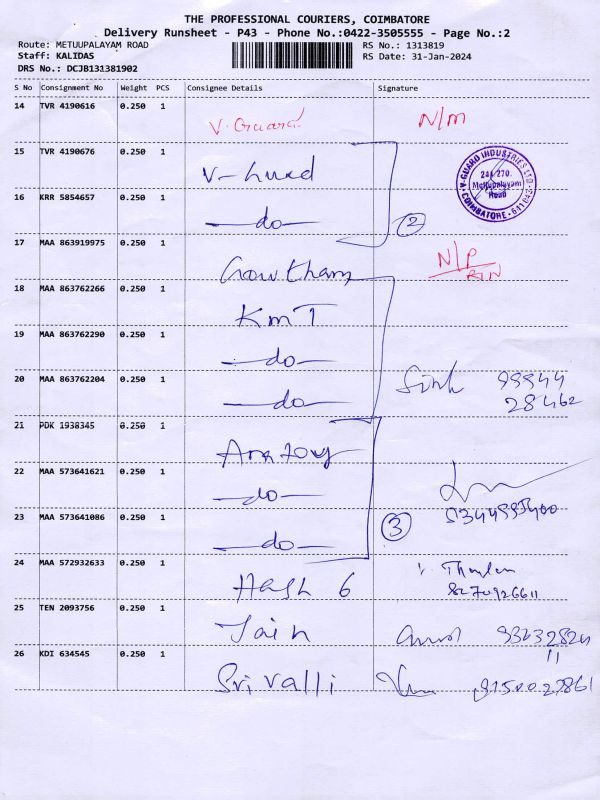 THE PROFESSIONAL COURIERS, COIMBATORE
Delivery Runsheet - P43 - Phone No.:0422-3505555 - Page No.:2
Route: METUUPALAYAM ROAD
RS No.: 1313819
Staff: KALIDAS
RS Date: 31-Jan-2024
DRS No.: DCJB131381902
S No Consignment No Weight PCS Consignee Details Signature
14 TVR 4190616 0.250 1
V. Guard N/M
15 TVR 4190676 0.250 1
V-
V-GUARD INDUSTRIES LTD.
241 270.
Mettupalayam
Road
COIMBATORE - 641 043.
16 KRR 5854657 0.250 1
—do— 2
17 MAA 863919975 0.250 1
Gowtham N/P
RTN
18 MAA 863762266 0.250 1
KmT
19 MAA 863762290 0.250 1
—do—
20 MAA 863762204 0.250 1
—do— 99944
28462
21 PDK 1938345 0.250 1
22 MAA 573641621 0.250 1
—do—
23 MAA 573641086 0.250 1
—do— 3
24 MAA 572932633 0.250 1
Hash 6 8270926611
25 TEN 2093756 0.250 1
Jain
26 KDI 634545 0.250 1
Sri Valli